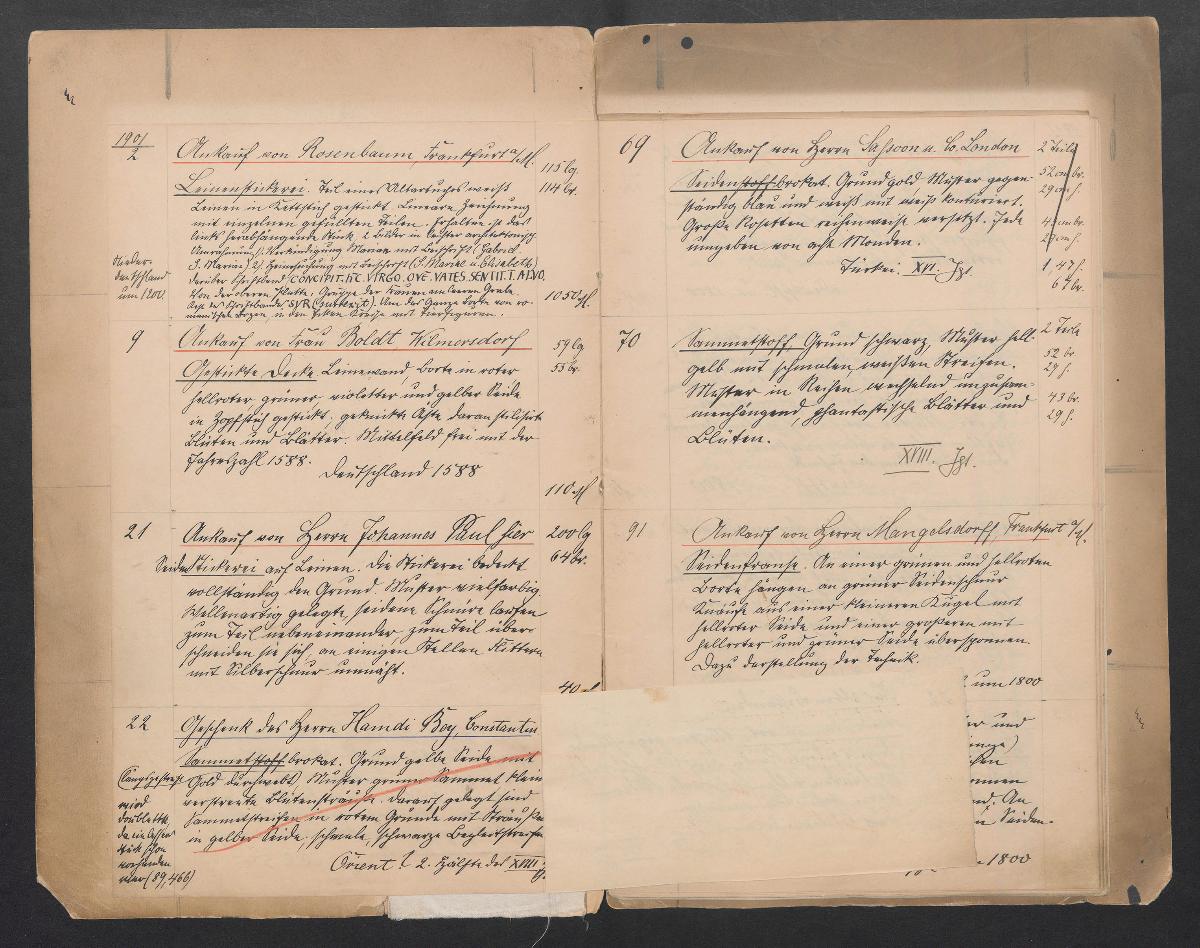 1901/2
Ankauf von Rosenbaum, Frankfurt a/M.
115 lg.
114 br.
Leinenstickerei. Teil eines Altartuches weiß
Leinen in Kettstich gestickt. Lineare Zeichnung
mit einzelnen gefüllten Teilen. Erhalten ist das
links herabhängende Stück. 2 Bilder in
1) Verkündigung Mariae mit Beischrift (Gabriel
S. Maria) 2) Heimsuchung mit Beischrift (S. Maria u. Elisabeth)
darüber Schriftband CONCIPIT. HC. VIRGO. QVE. VATES. SENTIT. T. ALVO.
Von der oberen Gruppe der Frauen am leeren Grabe
Rest des Schriftbandes SVR Um das Ganze Borte von ro-
manischen Bogen, in den Ecken Kreise mit Tierfiguren.
Nieder-
deutschland
um 1200.
1050 M
9
Ankauf von Frau Boldt Wilmersdorf
59 lg
53 br.
Gestickte Decke Leinewand, Borte in roter
hellroter, grüner, violetter und gelber Seide
in Zopfstich gestickt: geknickte Äste daran stilisirte
Blüten und Blätter. Mittelfeld frei mit der
Jahreszahl 1588.
Deutschland 1588
110 M
21
Ankauf von Herrn Johannes Paul hier
200 lg
64 br.
Seidenstickerei auf Leinen. Die Stickerei bedeckt
vollständig den Grund. Muster vielfarbig
Wellenartig gelegte, seidene Schnüre laufen
zum Teil nebeneinander, zum Teil über-
schneiden sie sich, an einigen Stellen Flittern
mit Silberschnur umnäht.
40
22
Geschenk des Herrn Hamdi Bey, Constantin
Sammetstoff brokat. Grund gelbe Seide mit
Gold durchwebt, Muster grüner Sammet klein
verstreute Blütensträuße. Darauf gelegt sind
Sammetstreifen in rotem Grunde mit Sträußen
in gelber Seide, schmale, schwarze Begleitstreifen
Orient ? 2. Hälfte des XVIII
wird
Doublette
da
Stück schon
vorhanden
war (89,466)
69
Ankauf von Herrn Sassoon u. Co. London
2 Teile
Seidenstoff brokat. Grund gold Muster gegen-
ständig blau und weiß mit weiß konturiert.
Große Rosetten reihenweise versetzt. Jede
umgeben von acht Monden.
Türkei XVI. Jh.
52 cm br.
29 cm h.
1,47 h.
67 br.
70
Sammetstoff Grund schwarz, Muster hell-
gelb mit schmalen weißen Streifen.
Muster in Reihen wechselnd unzusam-
menhängend, phantastische Blätter und
Blüten.
XVIII. Jh.
2 Teile
52 br.
29 h.
43 br.
29 h.
91
Ankauf von Herrn Mangelsdorff, Frankfurt a/M.
Seidenfranse. An einer grünen und hellroten
Borte hängen an grüner Seidenschnur
Knäufe aus einer kleineren Kugel mit
hellroter Seide und einer größeren mit
hellroter und grüner Seide übersponnen.
Dazu Darstellung der Technik.
um 1800
und
An
Seiden-
1800